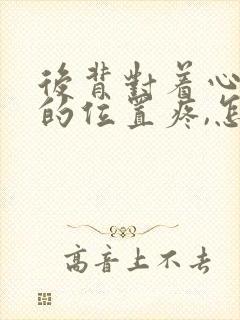 後背對着心
的位置疼,怎
高音上不去